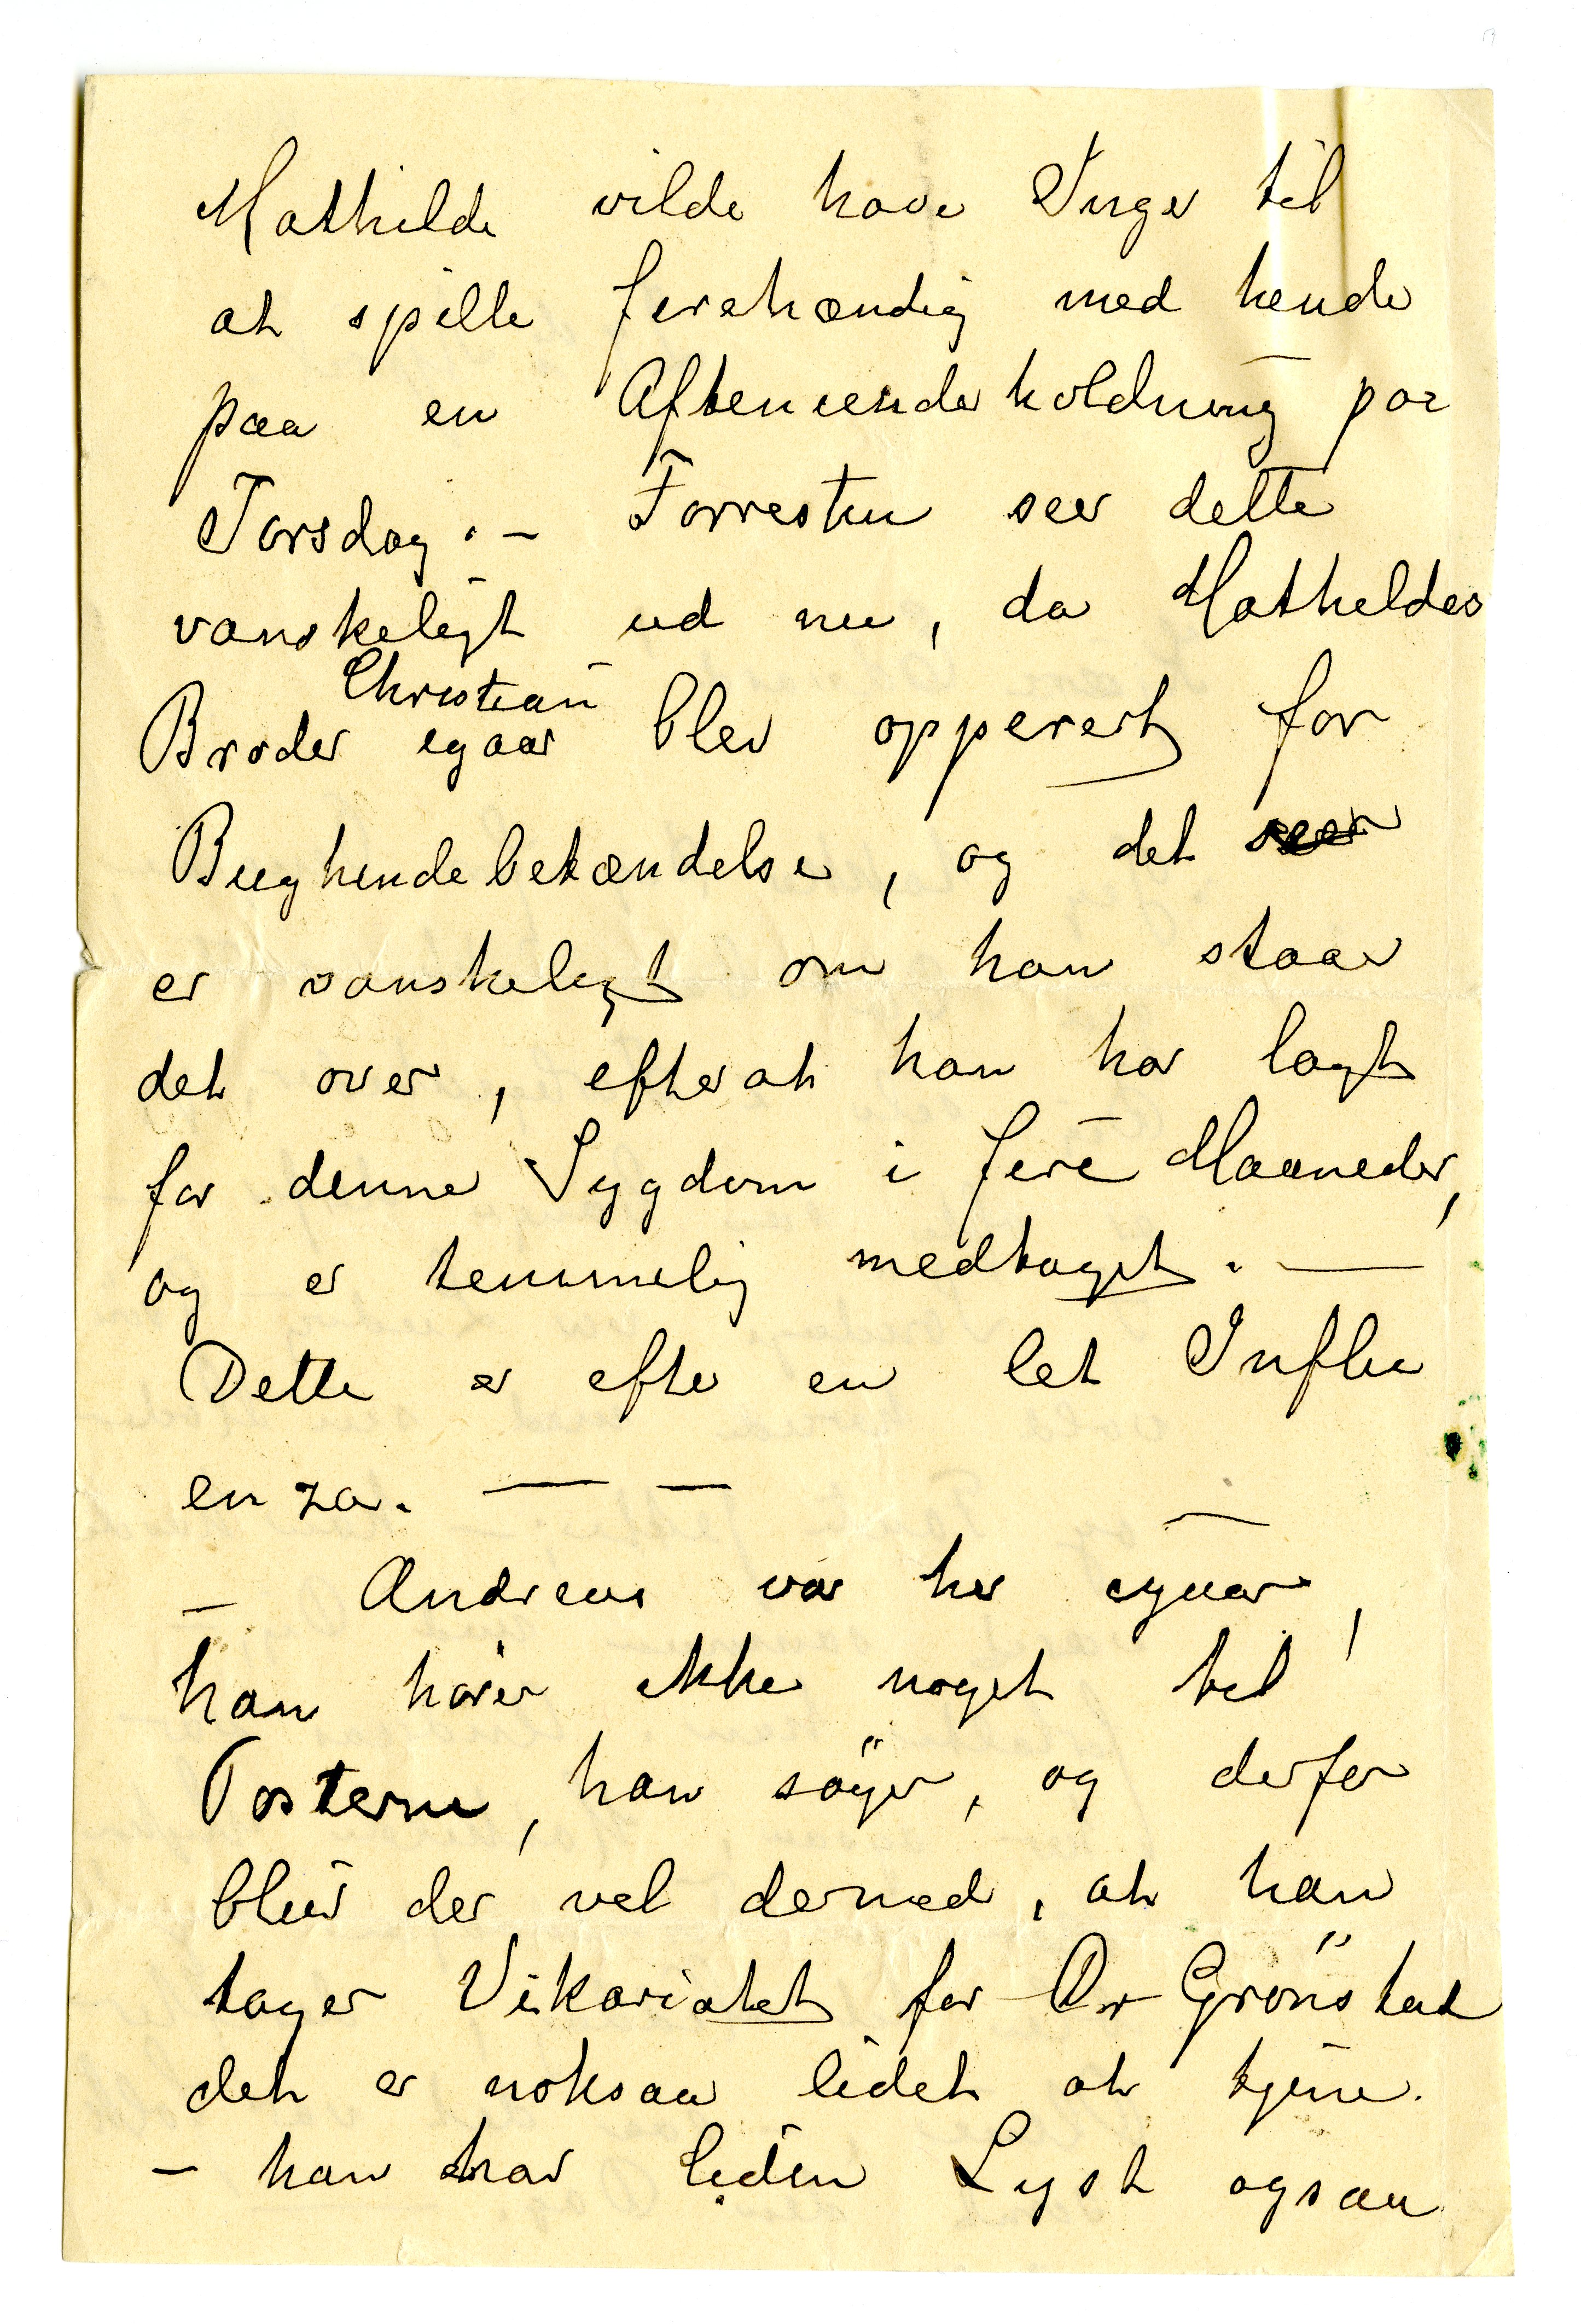 Mathilde vilde have Inger til
at spille firehændig med hende
paa en Aftenunderholdning paa
Torsdag. - Forresten seer dette
vanskeligt ud nu, da Mathildes
Christian
Broder igaar blev opperert for
Bughindebetændelse, og det seer
er vanskeligt om han staar
det over, efterat han har lagt
for denne Sygdom i fire Maaneder,
og er temmelig medtaget. —
Dette er efter en let Influ
enza. — —
- Andreas var her igaar,
han hører ikke noget til
Posterne, han söger, og derfor
bliver det vel derved, at han
tager Vikariatet for Dr Grönstad
det er noksaa lidet at tjene.
- han har liden Lyst ogsaa